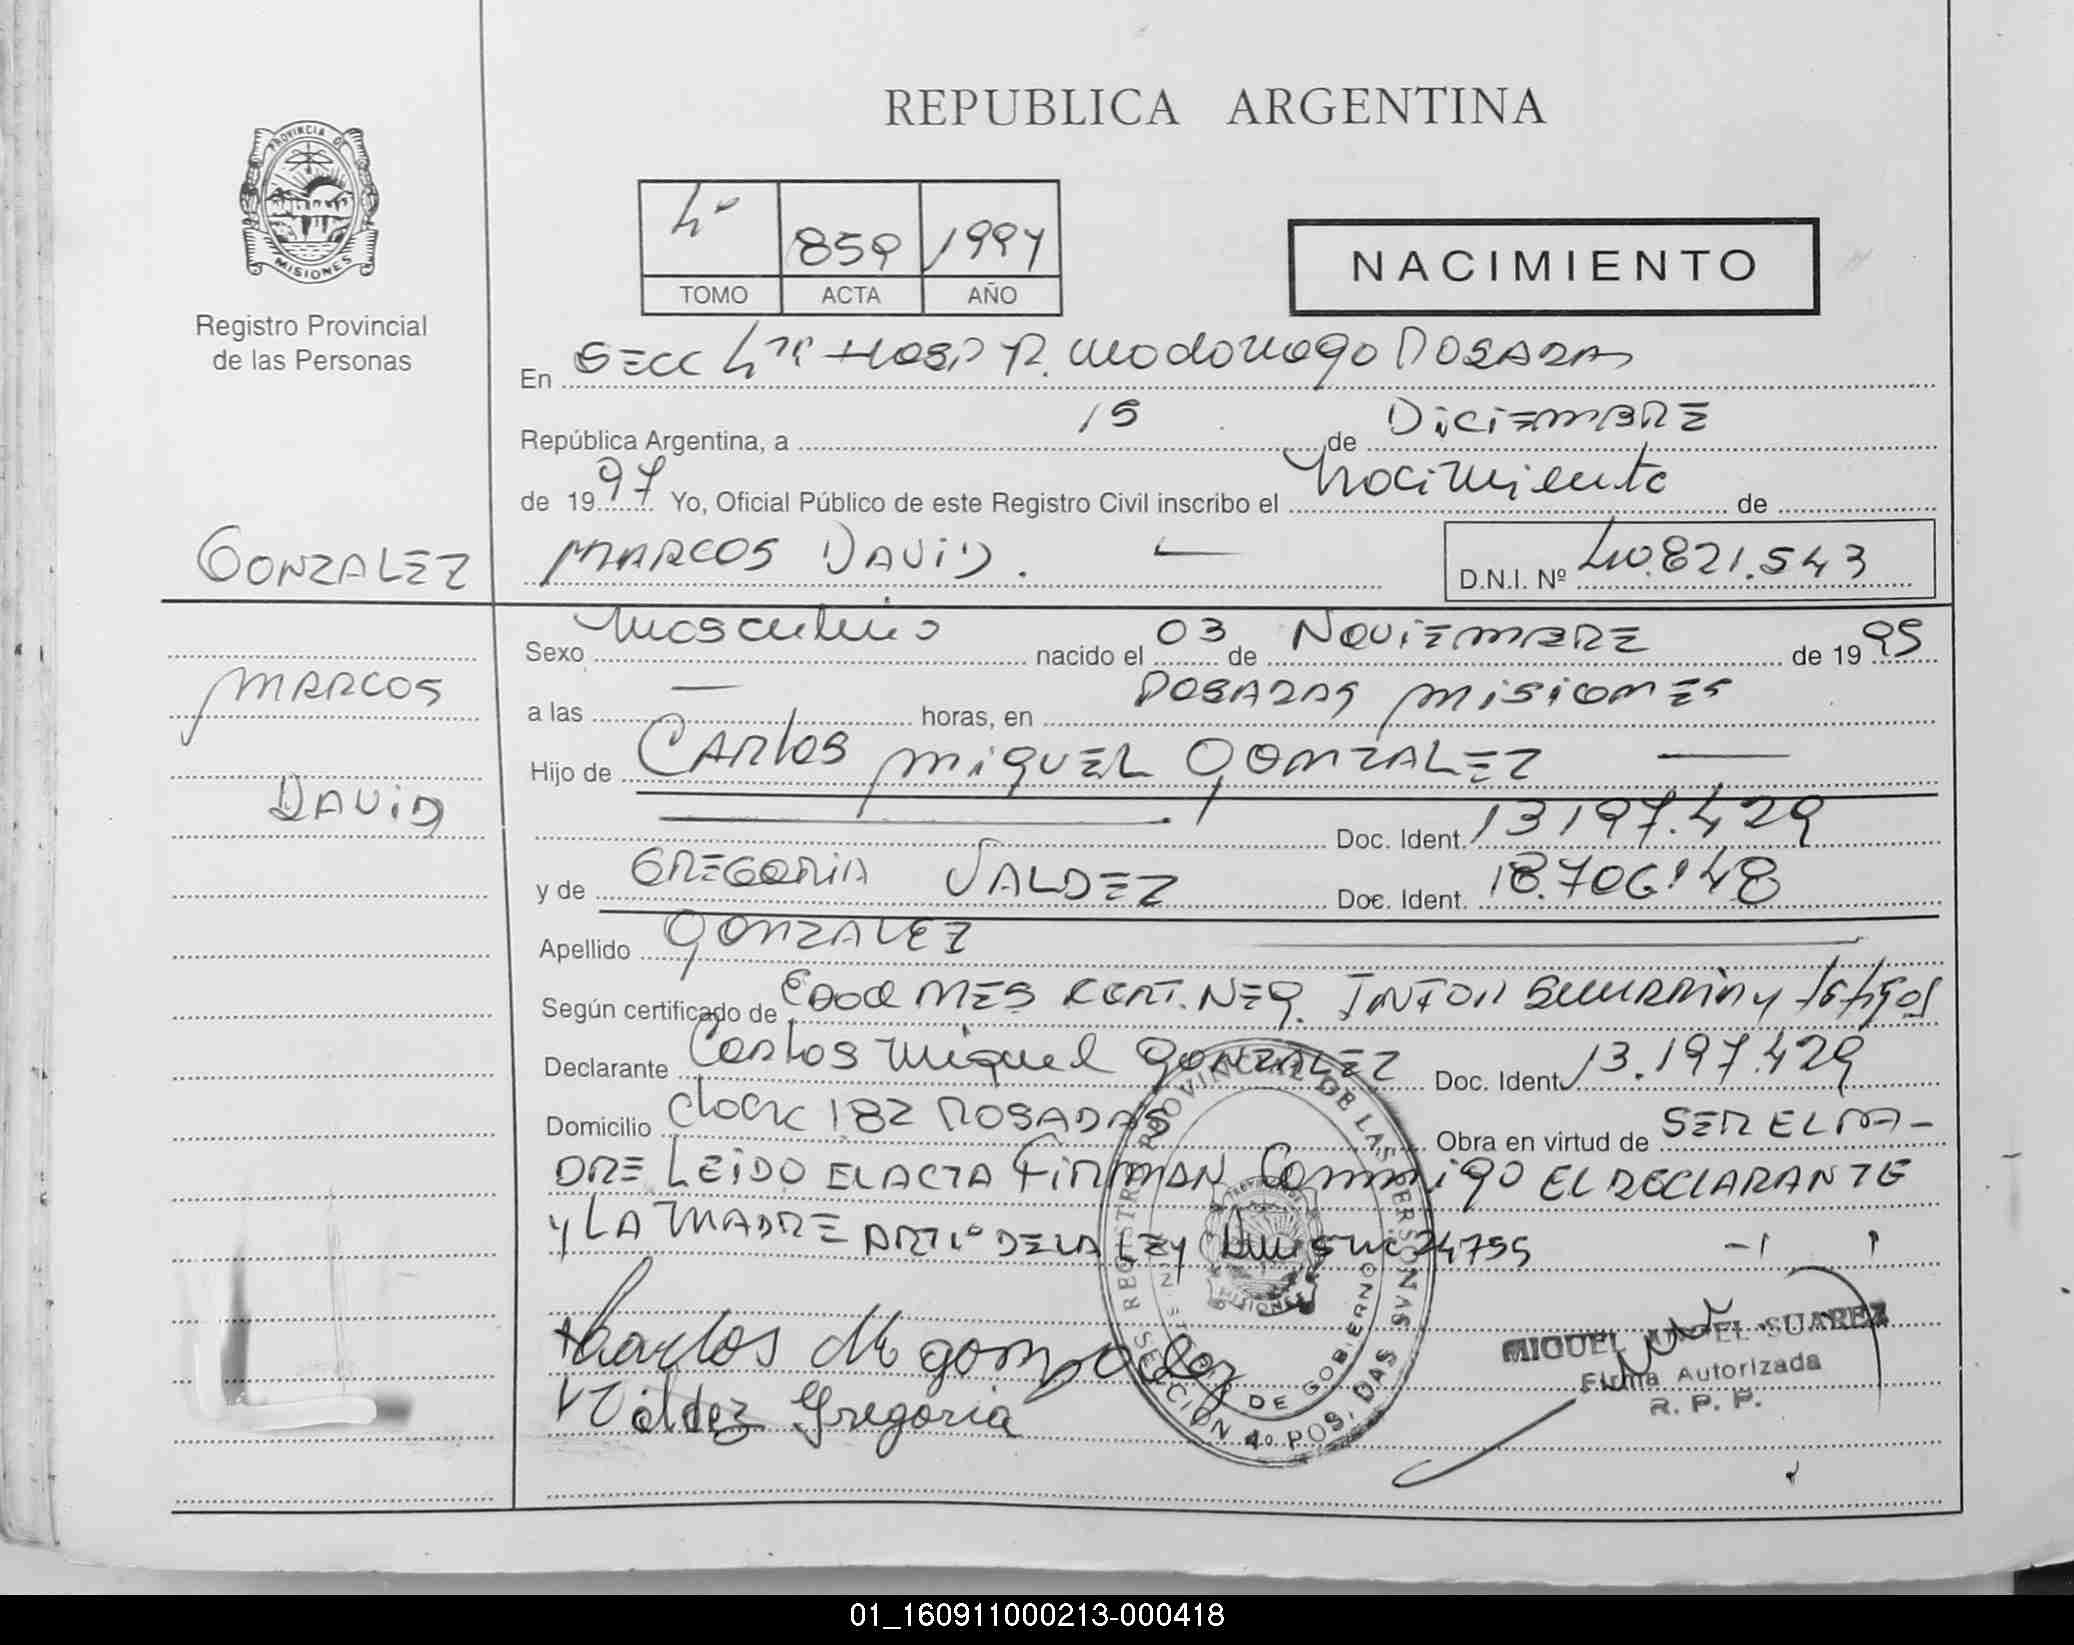 REPUBLICA ARGENTINA
PROVINCIA DE
MISIONES
Registro Provincial
de las Personas
4º 859 1997
TOMO ACTA AÑO
NACIMIENTO
En SECC 4ta HOSP R. Madariaga POSADAS
República Argentina, a 15 de DICIEMBRE
de 1997 Yo, Oficial Público de este Registro Civil inscribo el Nacimiento de
GONZALEZ
MARCOS DAVID.
D.N.I. Nº 40.821.543
MARCOS
DAVID
Sexo Masculino nacido el 03 de NOVIEMBRE de 1995
a las — horas, en POSADAS MISIONES
Hijo de CARLOS MIGUEL GONZALEZ
Doc. Ident. 13197.429
y de GREGORIA VALDEZ Doc. Ident. 18.706.148
Apellido GONZALEZ
Según certificado de MES CERT. NEG. y testigos
Declarante Carlos Miguel GONZALEZ Doc. Ident. 13.197.429
Domicilio 182 POSADAS Obra en virtud de SER EL PA-
DRE LEIDO EL ACTA FIRMAN Conmigo EL DECLARANTE
y LA MADRE ART 1º DE LA LEY 24755
Carlos M gonzalez
Valdez Gregoria
REGISTRO PROVINCIAL DE LAS PERSONAS
DE GOBIERNO
MISIONES
SECCION 4º POSADAS
MIGUEL ANGEL SUAREZ
Firma Autorizada
R. P. P.
01_160911000213-000418